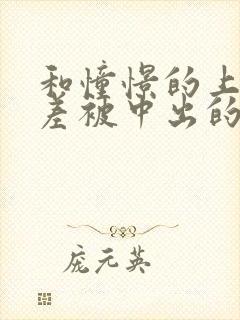 和憧憬的上
差被中出的
庞元英